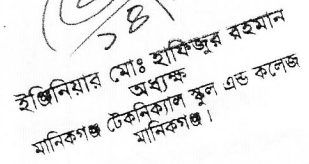 ১৪
ইঞ্জিনিয়ার মোঃ হাফিজুর রহমান
অধ্যক্ষ
মানিকগঞ্জ টেকনিক্যাল স্কুল এন্ড কলেজ
মানিকগঞ্জ।